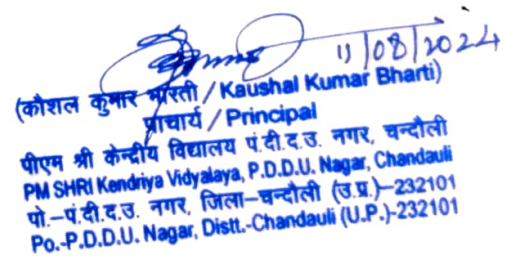 11/08/2024
(कौशल कुमार भारती / Kaushal Kumar Bharti)
प्राचार्य / Principal
पीएम श्री केन्द्रीय विद्यालय पं.दी.द.उ. नगर, चन्दौली
PM SHRI Kendriya Vidyalaya, P.D.D.U. Nagar, Chandauli
पो.-पं.दी.द.उ. नगर, जिला-चन्दौली (उ.प्र.)-232101
Po.-P.D.D.U. Nagar, Distt.-Chandauli (U.P.)-232101